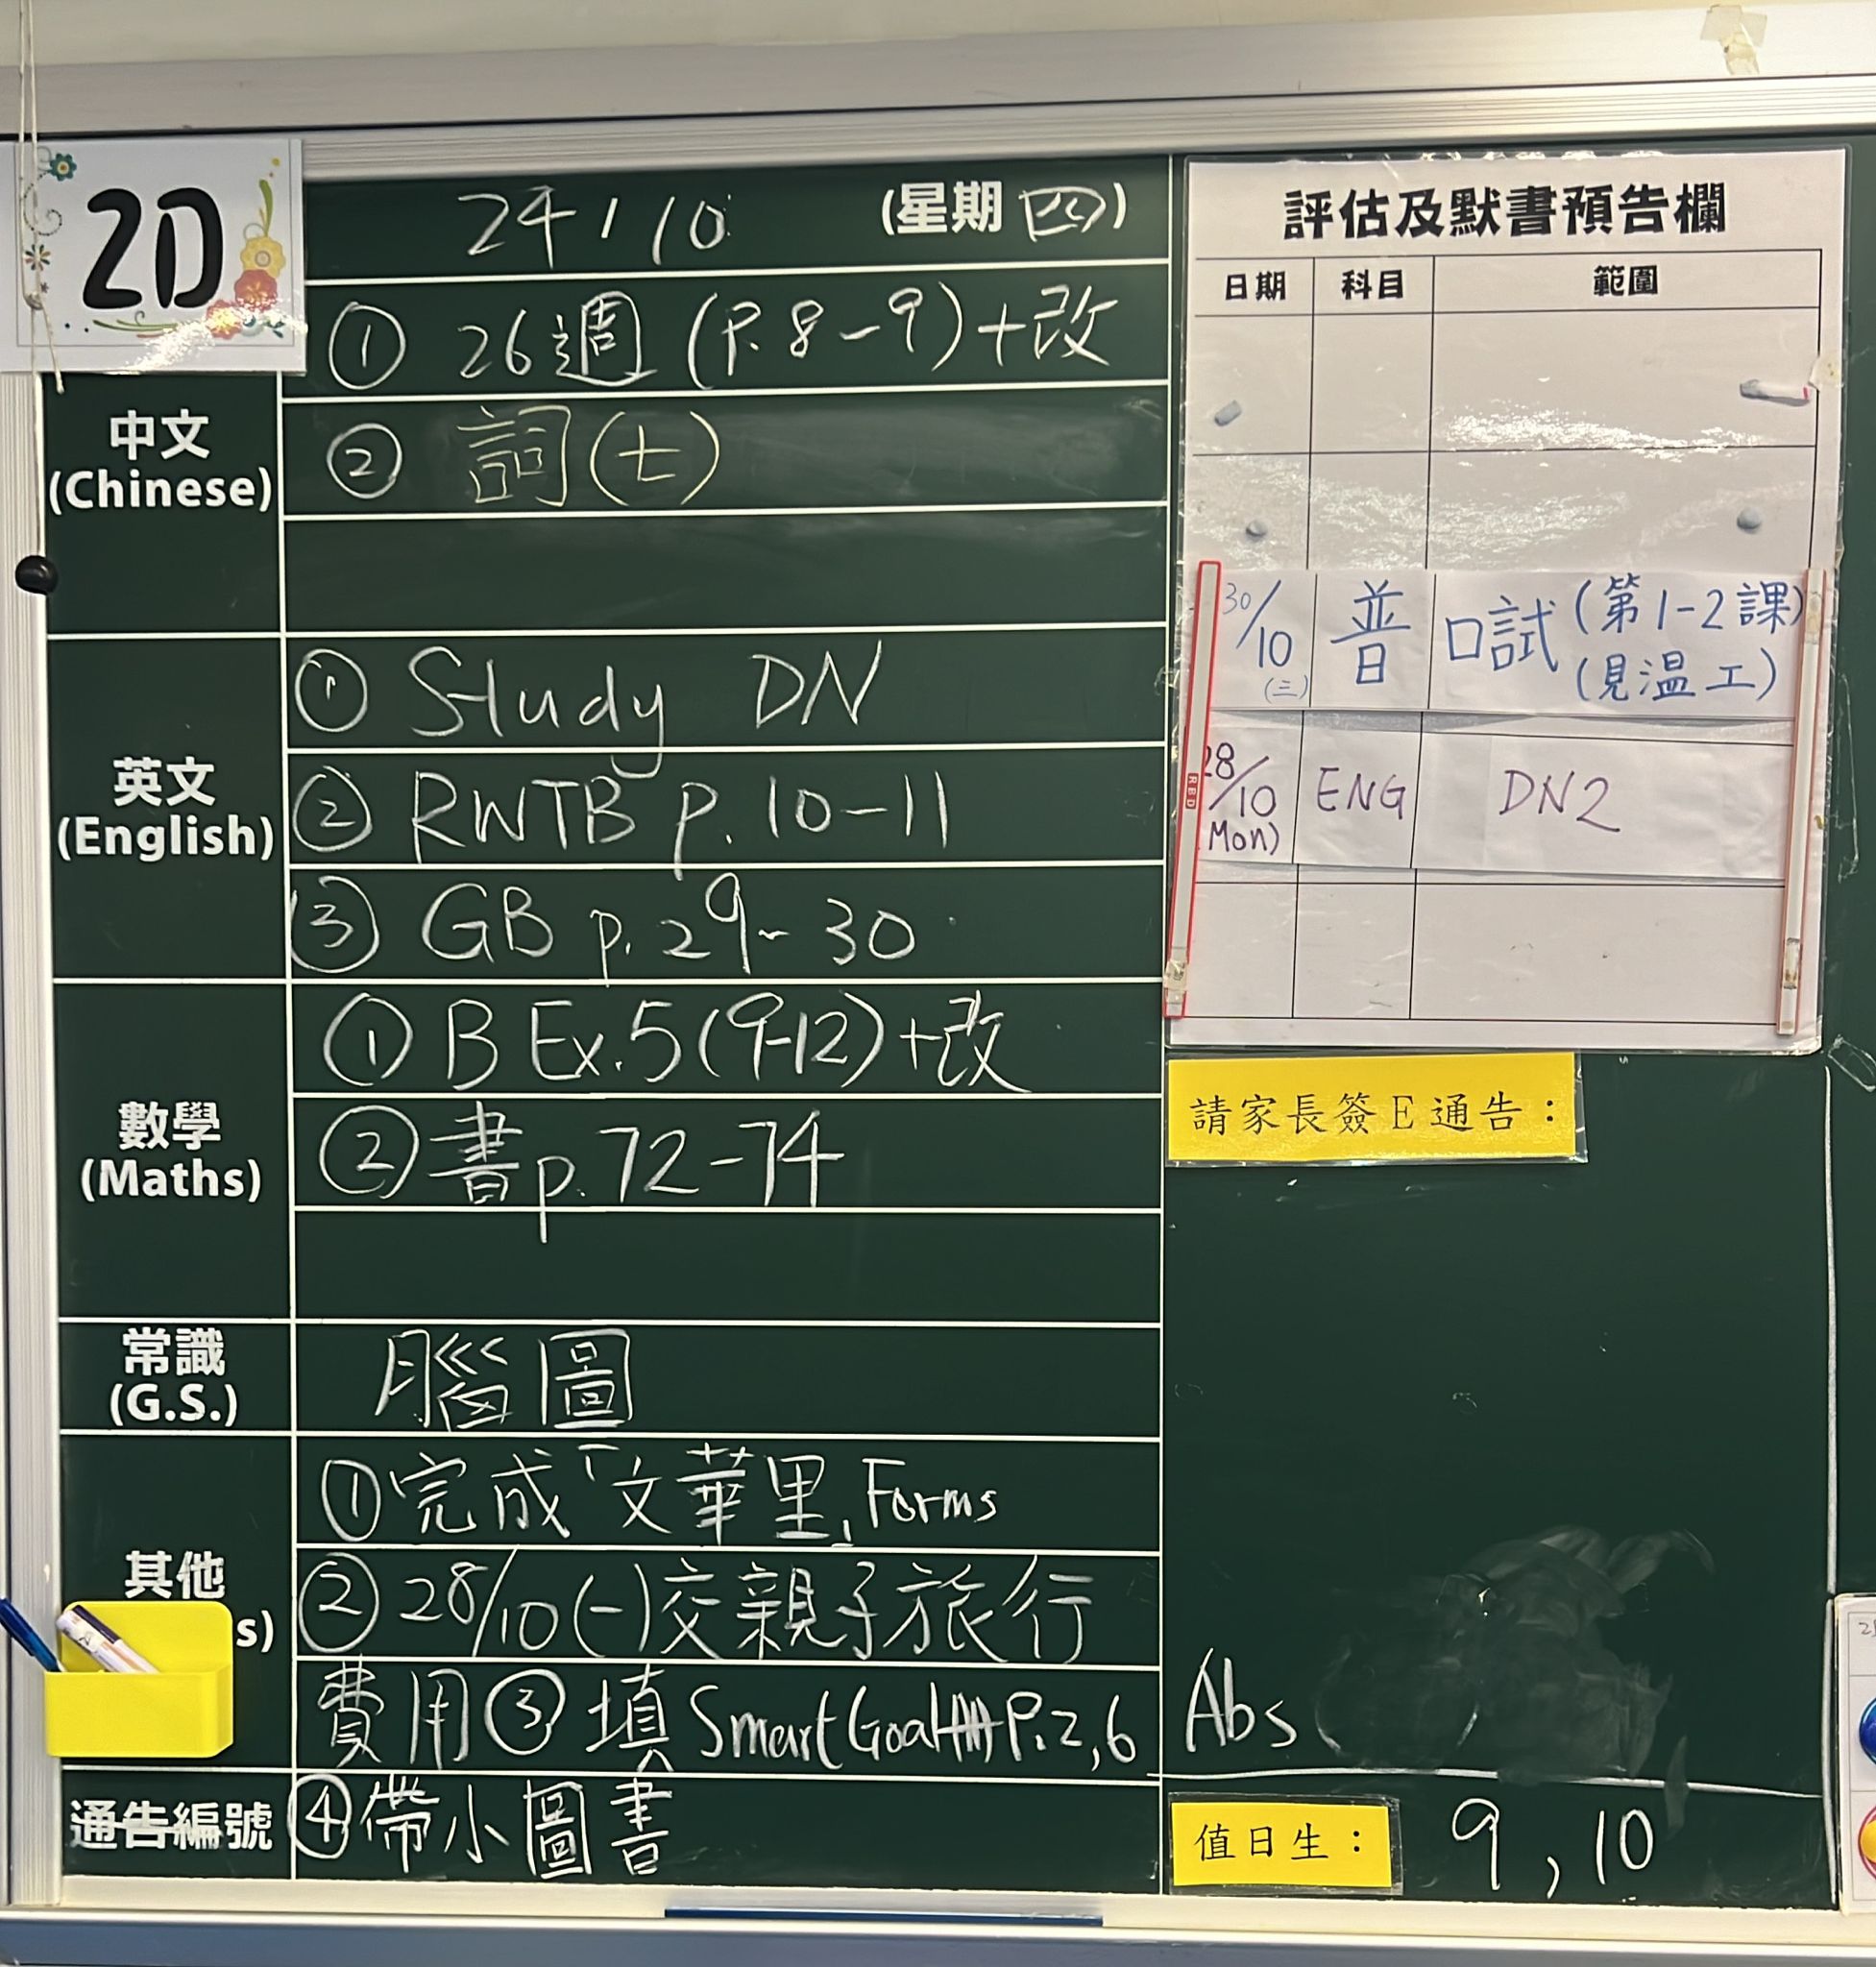 2D
24 / 10 (星期四)
中文
(Chinese)
① 26週 (P.8-9)+改
② 詞(七)
英文
(English)
① Study DN
② RWTB p. 10-11
③ GB p. 29-30
數學
(Maths)
① B Ex.5 (9-12)+改
② 書p. 72-74
常識
(G.S.)
腦圖
其他
s)
①完成「文華里」Forms
②28/10(一)交親子旅行
費用③填Smart Goal P.2,6
通告編號
④帶小圖書
評估及默書預告欄
日期 科目 範圍
30/10 (三) 普 口試 (第1-2課) (見温工)
28/10 (Mon) ENG DN2
請家長簽E通告：
Abs
值日生： 9, 10